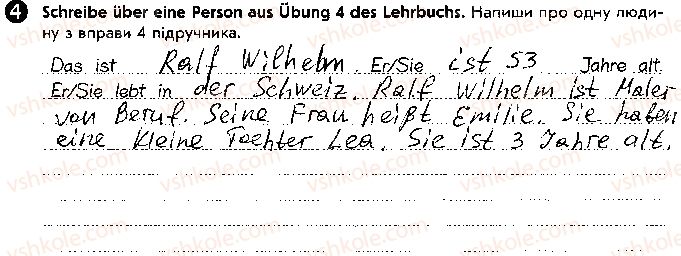 4 Schreibe über eine Person aus Übung 4 des Lehrbuchs. Напиши про одну люди-
ну з вправи 4 підручника.
Das ist Ralf Wilhelm. Er/Sie ist 53 Jahre alt.
Er/Sie lebt in der Schweiz. Ralf Wilhelm ist Maler
von Beruf. Seine Frau heißt Emilie. Sie haben
eine kleine Tochter Lea. Sie ist 3 Jahre alt.
vshkole.com